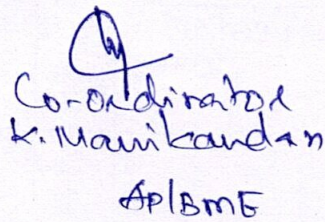 Co-ordinator
K. Manikandan
AP/BME